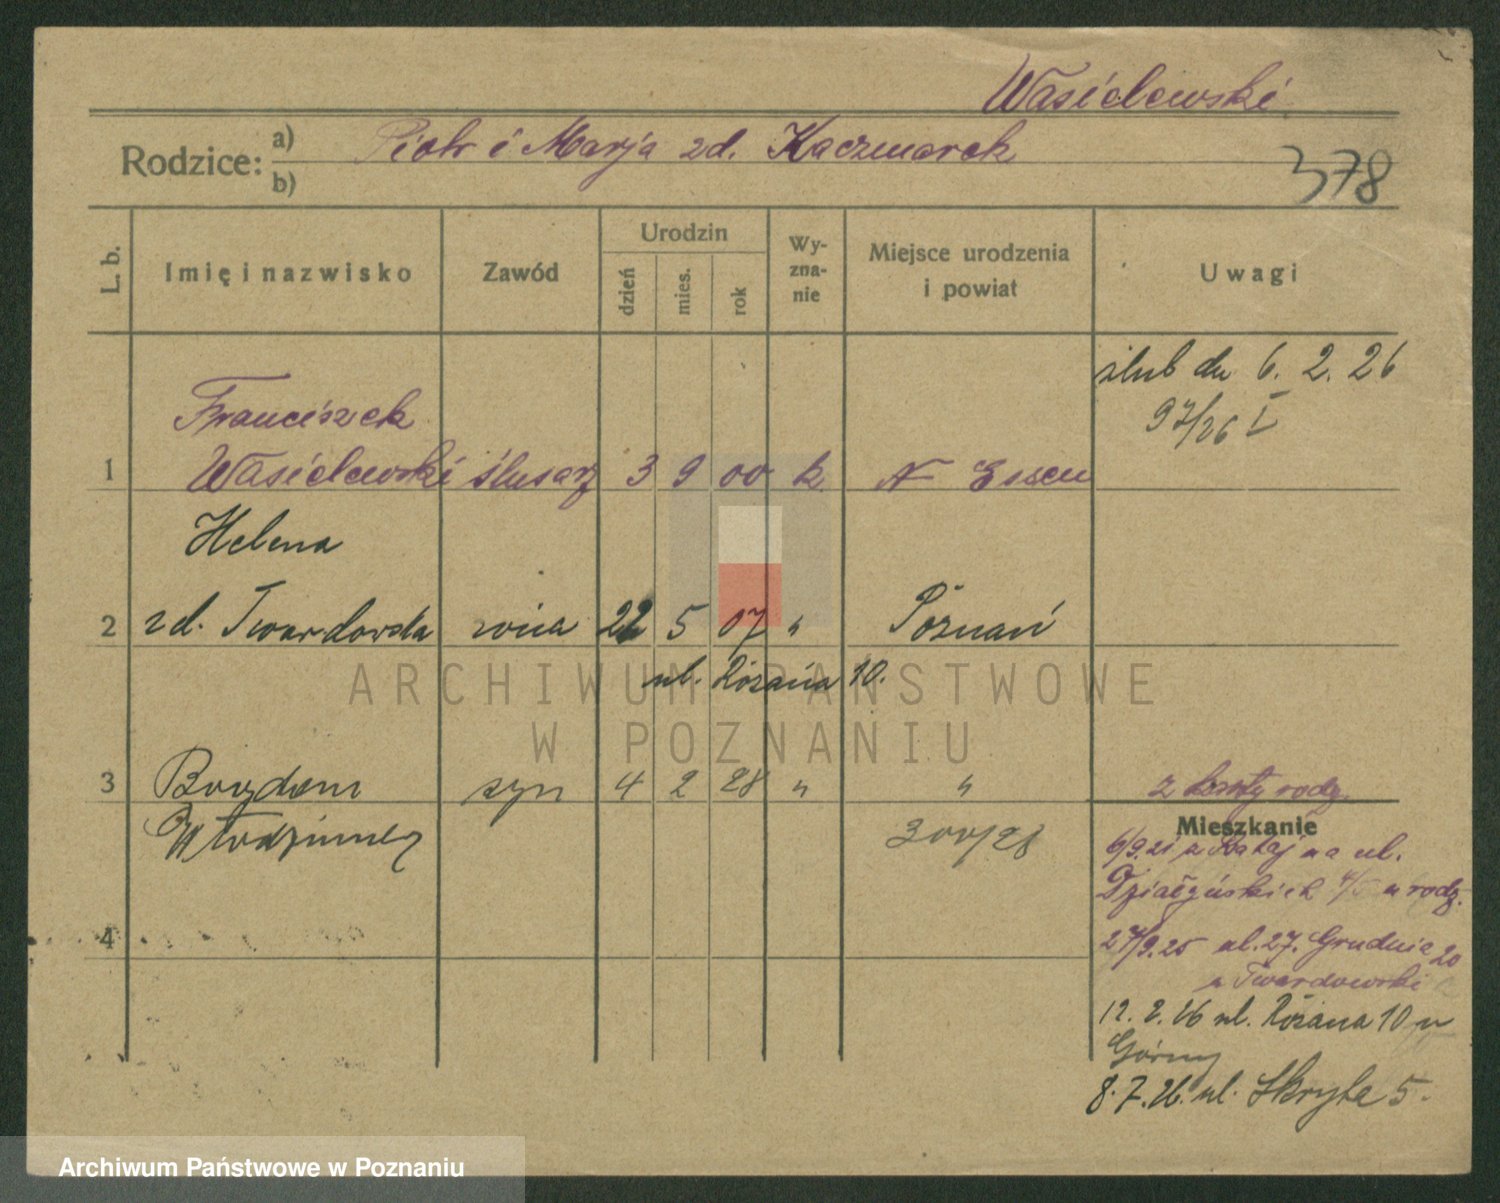 Wasielewski
Rodzice: a) Piotr i Marja zd. Kaczmarek
b)
378
L. b. Imię i nazwisko Zawód Urodzin dzień mies. rok Wyznanie Miejsce urodzenia i powiat Uwagi
ślub dn 6. 2. 26
97/26 I
Franciszek
1 Wasielewski ślusarz 3 9 00 k N Essen
Helena
2 zd. Twardowska żona 22 5 07 " Poznań
ul. Różana 10.
3 Bogdan syn 4 2 28 " "
Włodzimierz 300/28
z karty rodz.
Mieszkanie
6/9.21 z Rataj na ul.
Działyńskich 4/5 u rodz.
4
27/9.25 ul. 27. Grudnia 20
u Twardowski
12. 2. 26 ul. Różana 10 u
Górny
8. 7. 26. ul. Skryta 5.
ARCHIWUM PAŃSTWOWE
W POZNANIU
Archiwum Państwowe w Poznaniu